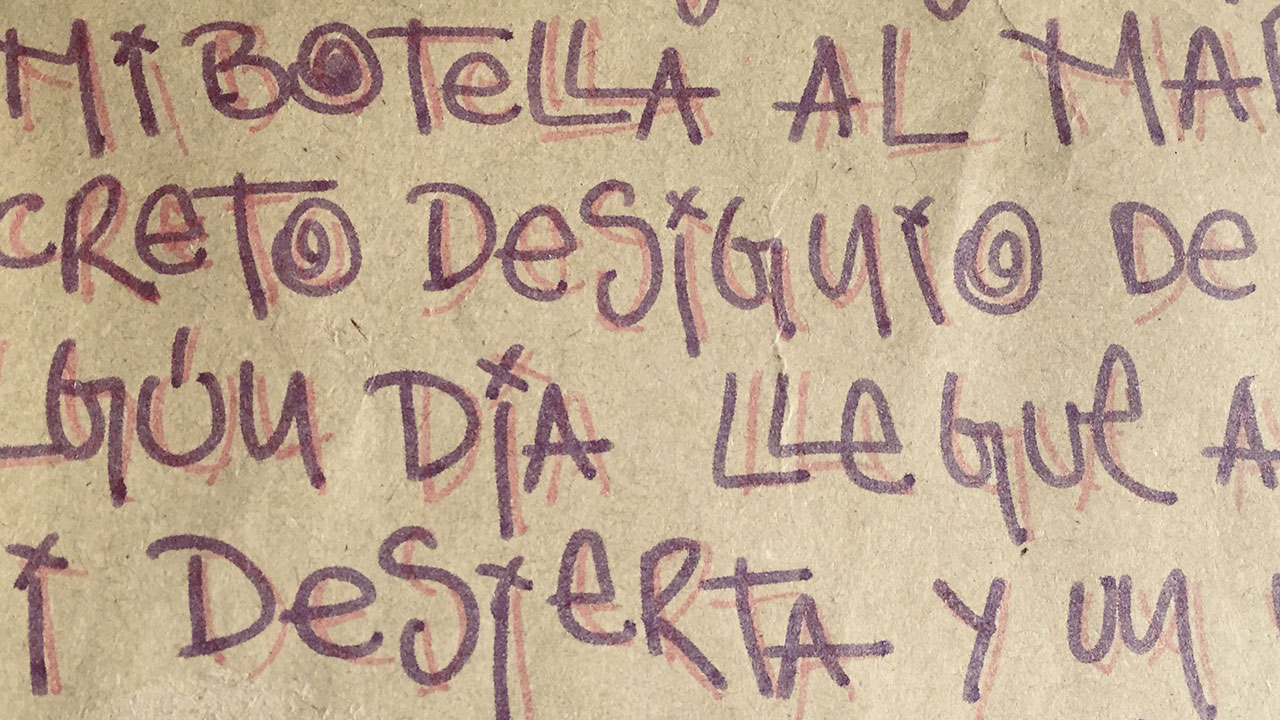 MI BOTELLA AL MAR
CRETO DESIGNIO DE
LGÚN DIA LLEGUE A
I DESIERTA Y UN